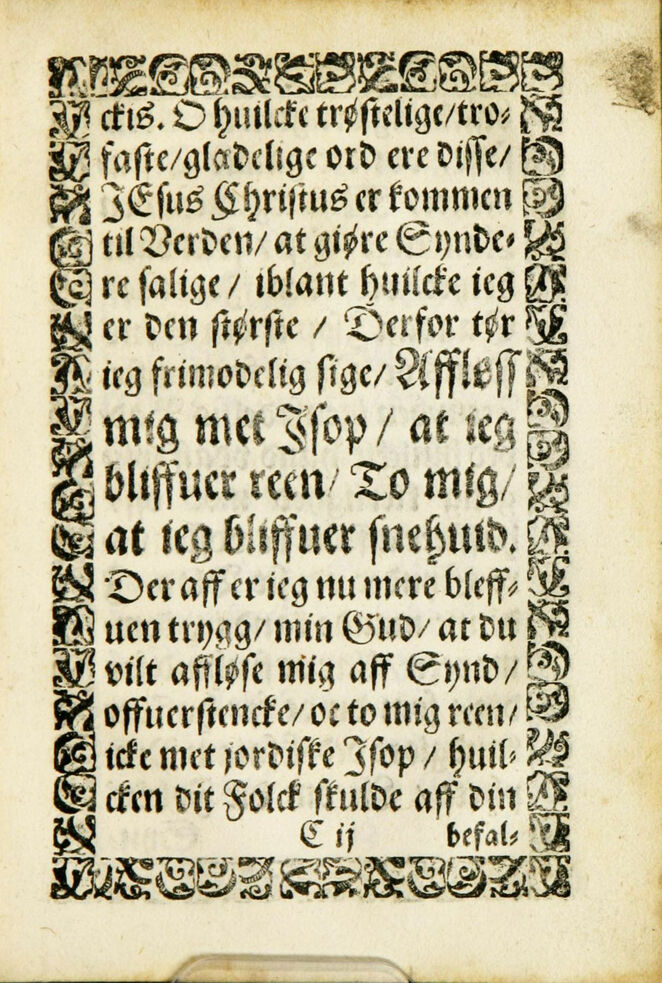 ckis. O huilcke trøstelige/tro⸗
faste/gladelige ord ere disse/
JEsus Christus er kommen
til Verden/ at giøre Synde⸗
re salige / iblant huilcke ieg
er den største / Derfor tør
ieg frimodelig sige/ Affløss
mig met Jsop / at ieg
bliffuer reen/ To mig/
at ieg bliffuer snehuid.
Der aff er ieg nu mere bleff⸗
uen trygg/ min Gud/ at du
vilt affløse mig aff Synd/
offuerstencke/ oc to mig reen/
icke met jordiske Jsop / huil⸗
cken dit Folck skulde aff din
C ij befal⸗